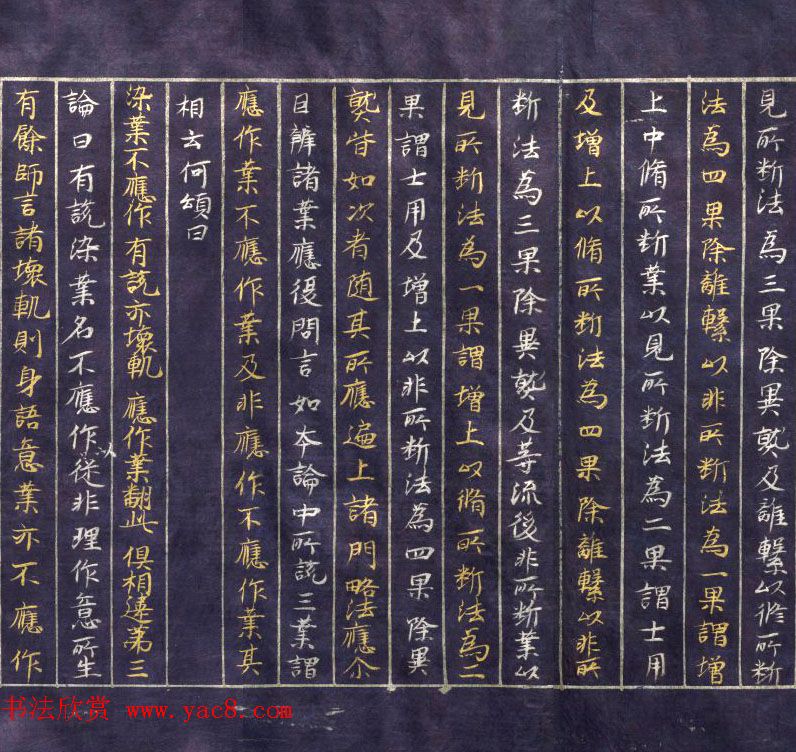 見所斷法為三果除異熟及離繫以修所斷
法為四果除離繫以非所斷法為一果謂增
上中脩所斷業以見所斷法為二果謂士用
及增上以脩所斷法為四果除離繫以非所
斷法為三果除異熟及等流後非所斷業以
見所斷法為一果謂增上以脩所斷法為二
果謂士用及增上以非所斷法為四果除異
熟皆如次者随其所應遍上諸門略法應尒
因辯諸業應復問言如本論中所説三業謂
應作業不應作業及非應作不應作業其
相云何頌曰
染業不應作 有説亦壞軌 應作業翻此 俱相違第三
論曰有説染業名不應作以從非理作意所生
有餘師言諸壞軌則身語意業亦不應作
书法欣赏 www.yac8.com